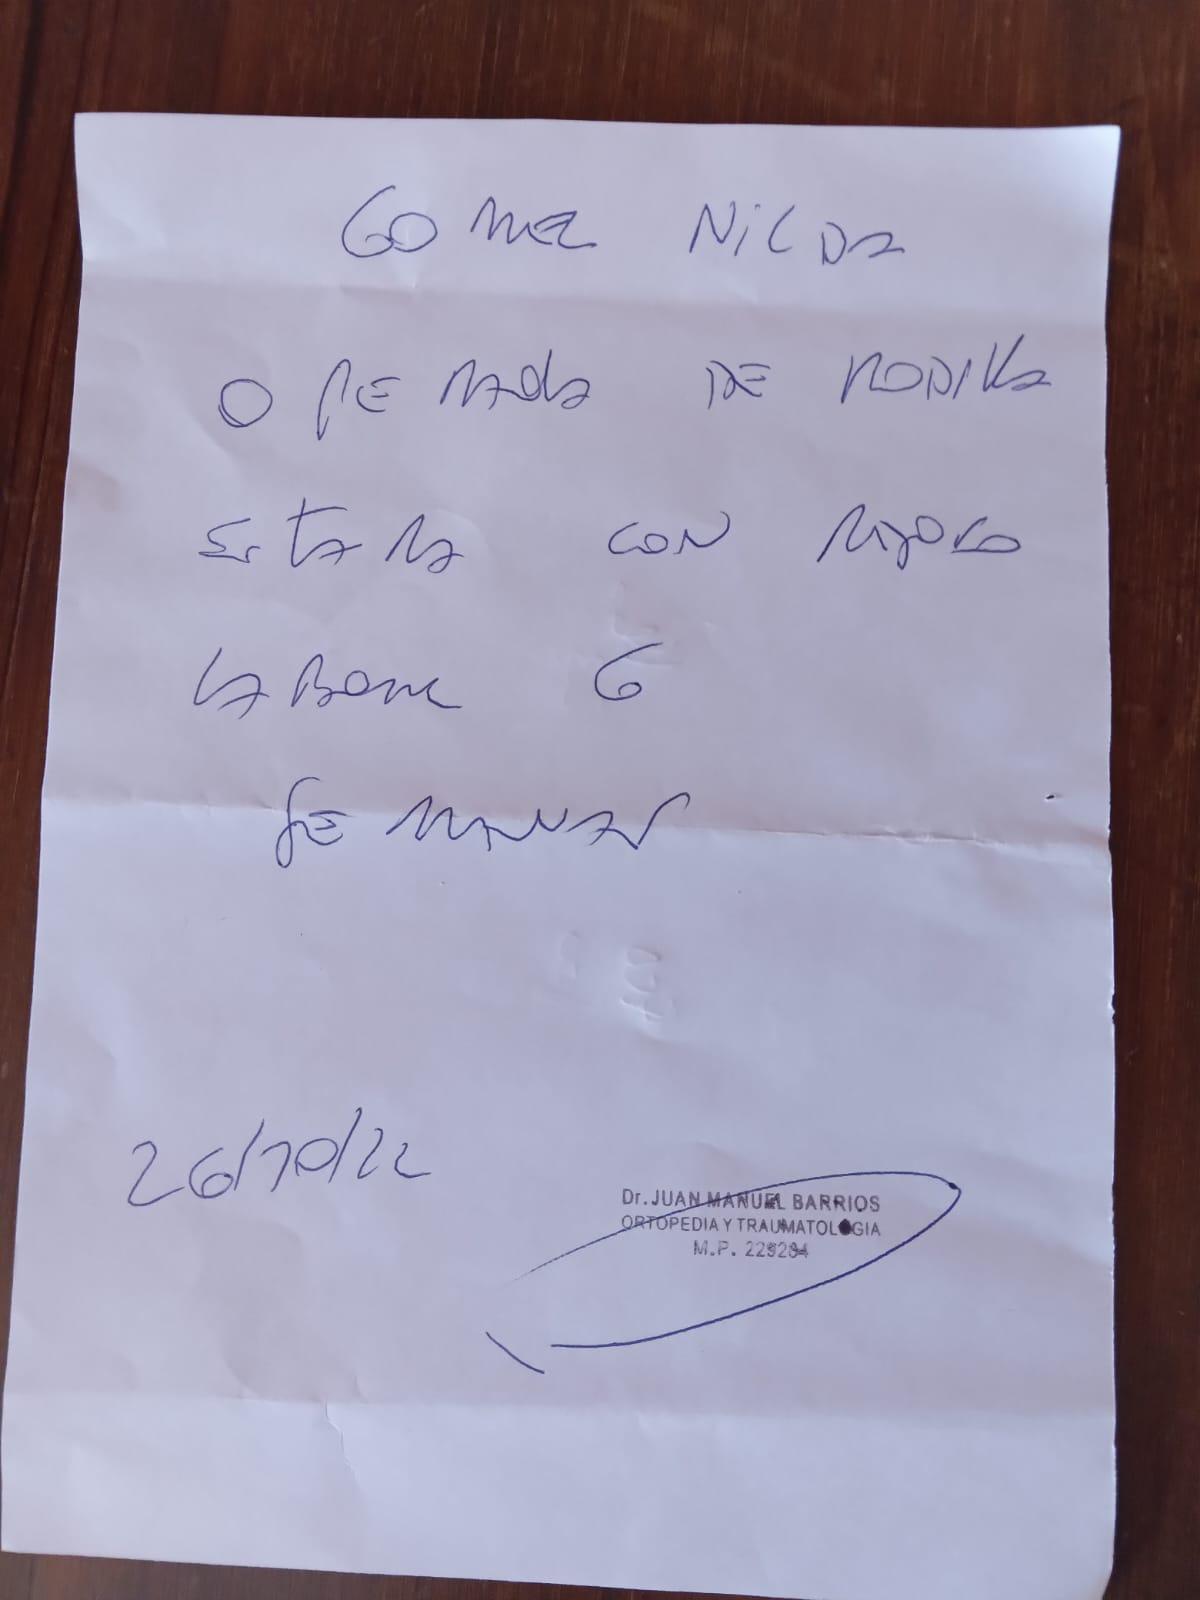 GOMEZ NILDA
OPERADA DE RODILLA
ESTARA CON REPOSO
LABORAL 6
SEMANAS
26/10/22
Dr. JUAN MANUEL BARRIOS
ORTOPEDIA Y TRAUMATOLOGIA
M.P.